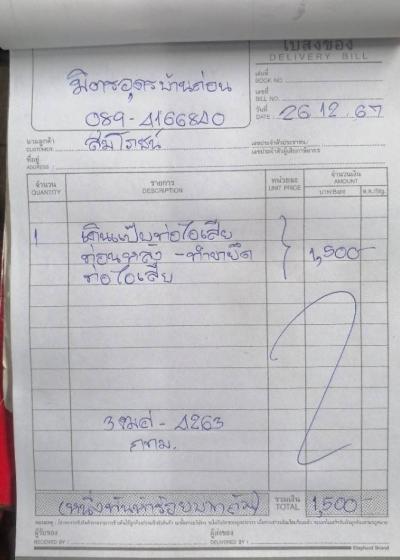 ใบส่งของ
DELIVERY BILL
มิตรอุดรบ้านก่อน
089-4166840
เล่มที่
BOOK NO.
เลขที่
BILL NO.
วันที่
DATE 26.12.67
นามลูกค้า
CUSTOMER สมโภชน์
เลขประจำตัวประชาชน/
เลขประจำตัวผู้เสียภาษีอากร
ที่อยู่
ADDRESS
จำนวน
QUANTITY
รายการ
DESCRIPTION
หน่วยละ
UNIT PRICE
จำนวนเงิน
AMOUNT
บาท/Baht
ส.ต./Stg.
1 เดินแป๊บท่อไอเสีย
ท่อนหลัง - ทำขายึด 1,500-
ท่อไอเสีย
3ฒฒ - 4263
กทม.
(หนึ่งพันห้าร้อยบาทถ้วน)
รวมเงิน
TOTAL 1,500-
ผู้รับของ
RECEIVED BY
ผู้ส่งของ
DELIVERED BY
Elephant Brand